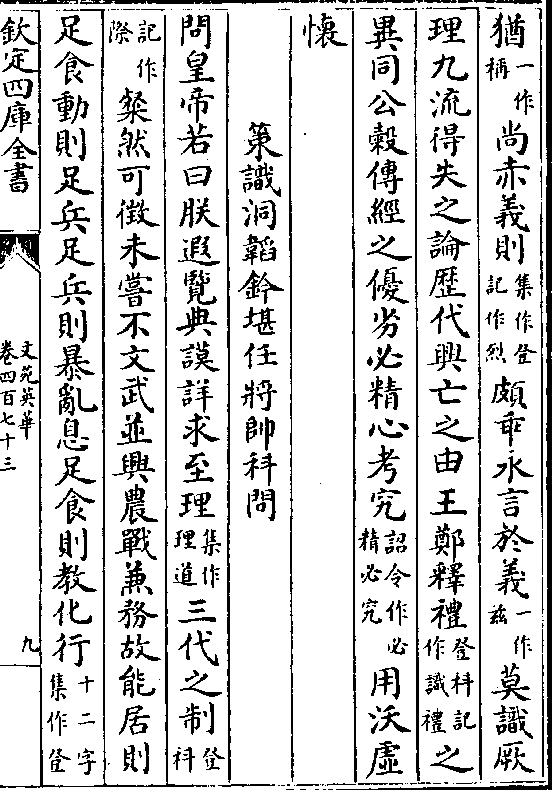 猶一作稱尚赤義則集作登記作烈頗乖永言於義一作兹莫識厥
理九流得失之論歷代興亡之由王鄭釋禮登科記作識禮之
異同公穀傳經之優劣必精心考究詔令作必精必究用沃虛
懷
策識洞韜鈐堪任將帥科問
問皇帝若曰朕遐覽典謨詳求至理集作理道三代之制登科
記作際粲然可徵未嘗不文武並興農戰兼務故能居則
足食動則足兵足兵則暴亂息足食則教化行十二字集作登
欽定四庫全書
文苑英華
卷四百七十三
九